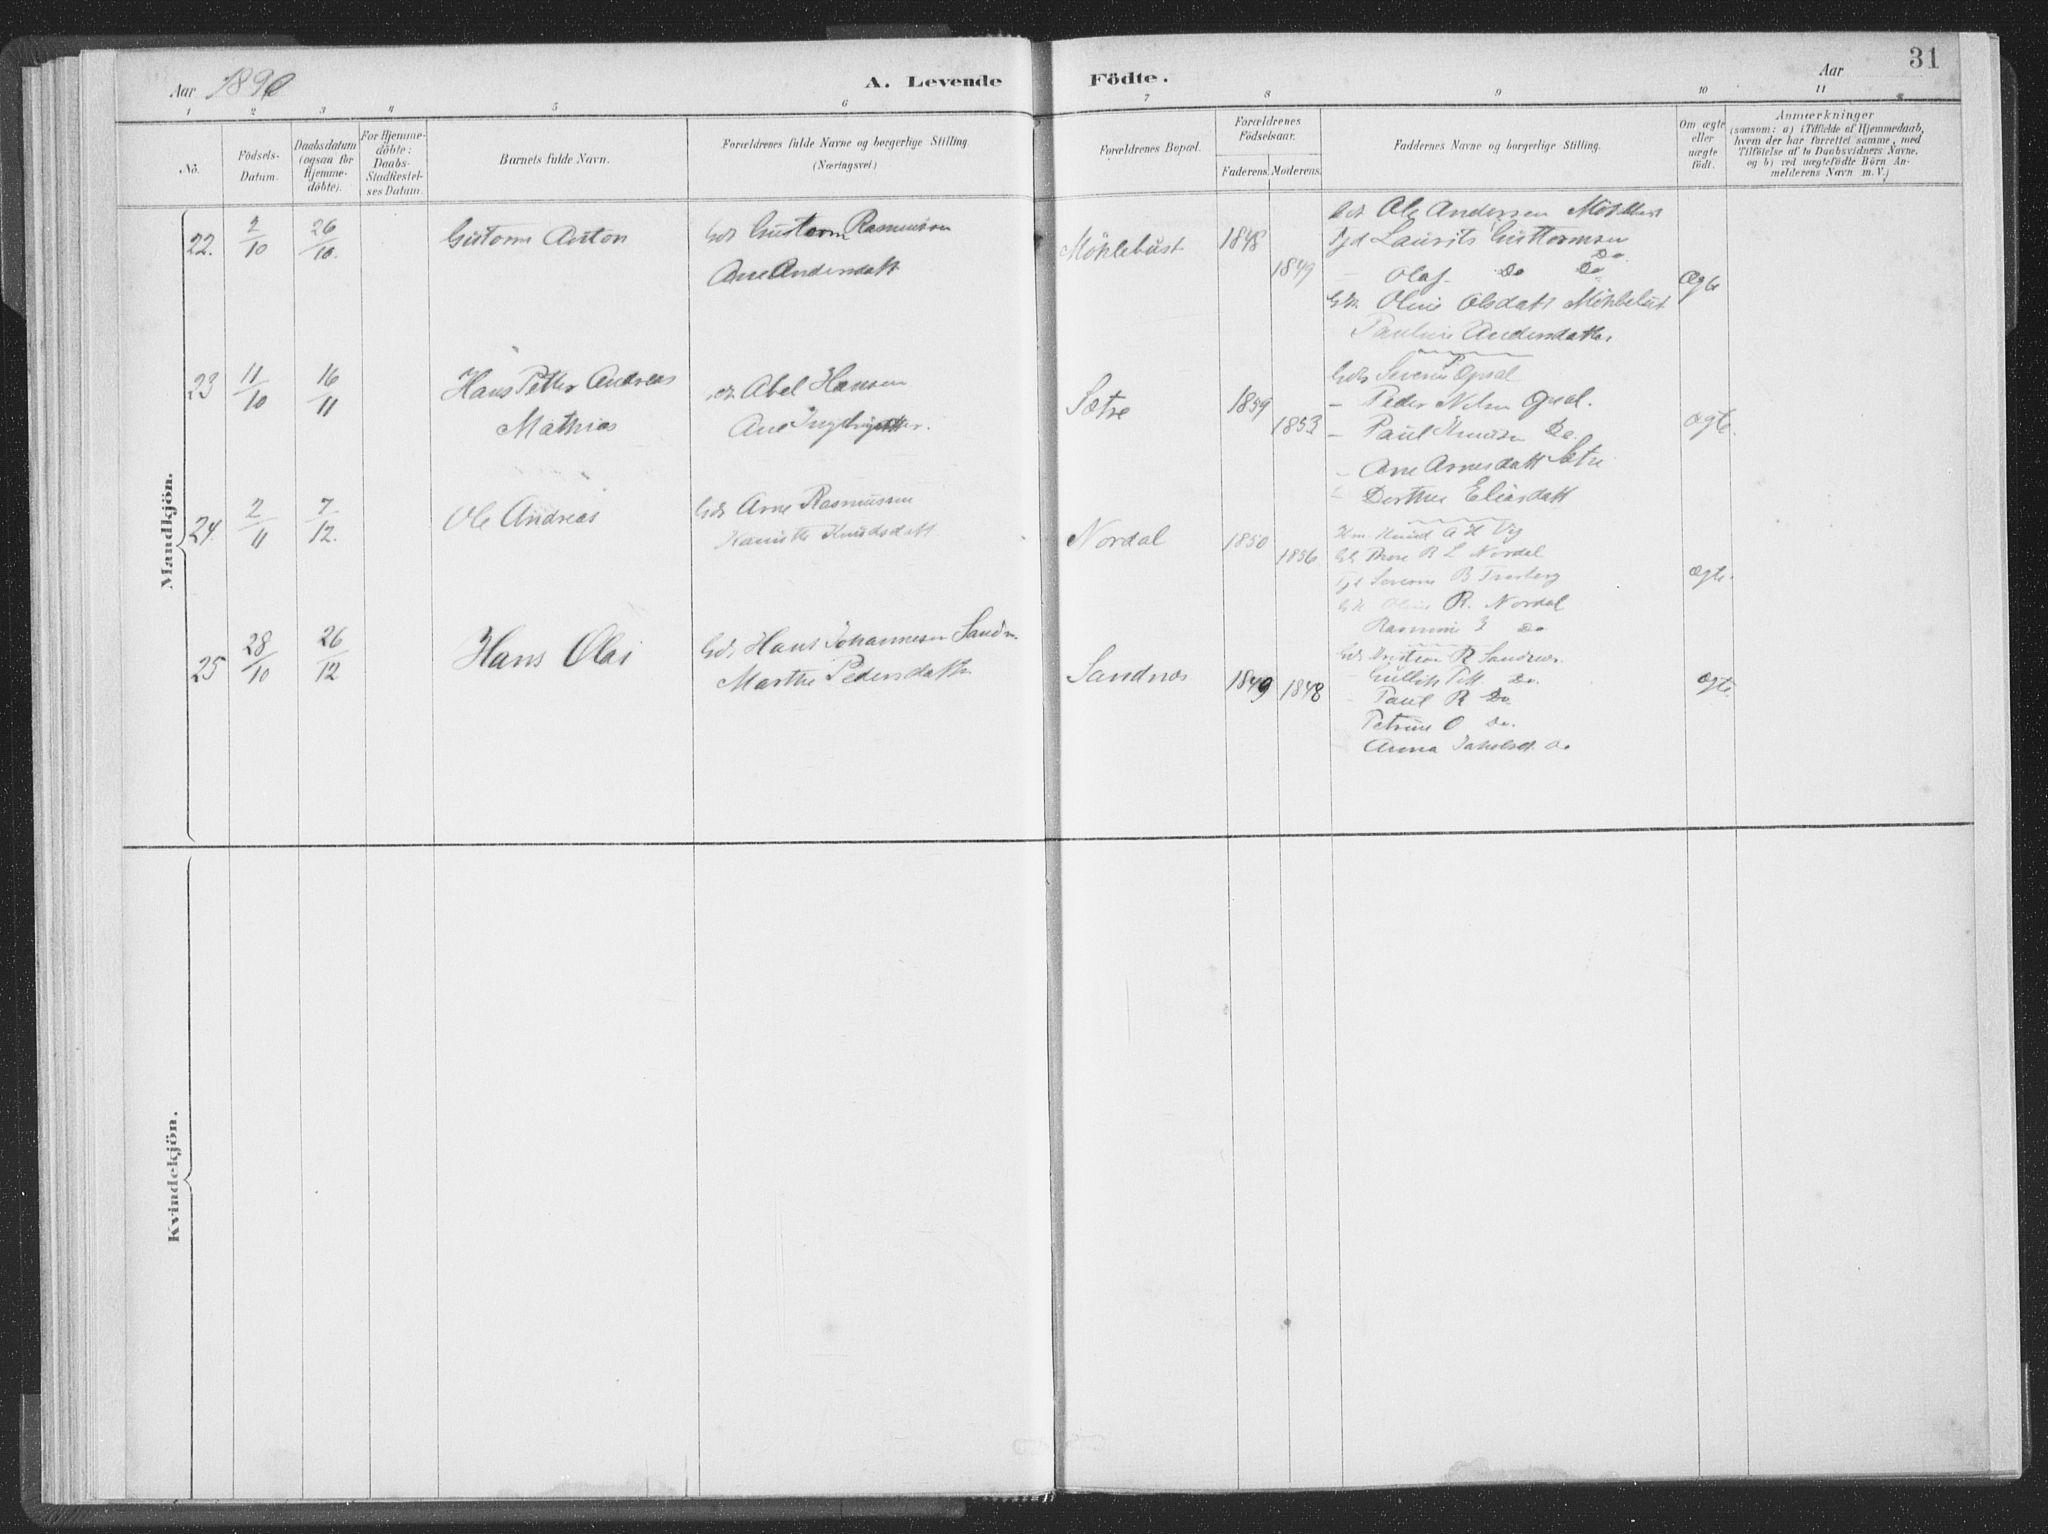 31
Aar 1890
A. Levende Födte.
Aar
1 2 3 4 5 6 7 8 9 10 11
No.
Födsels-Datum.
Daabsdatum (ogsaa for Hjemme-döbte).
For Hjemme-döbte: Daabs-Stadfæstel-ses Datum.
Barnets fulde Navn.
Forældrenes fulde Navne og borgerlige Stilling (Næringsvei)
Forældrenes Bopæl.
Forældrenes Födselsaar.
Faderens. Moderens.
Faddernes Navne og borgerlige Stilling.
Om ægte eller uægte födt.
Anmærkninger
(saasom: a) i Tilfælde af Hjemmedaab,
hvem der har forrettet samme, med
Tilföielse af to Daabsvidners Navne,
og b) ved uægtefödte Börn An-
melderens Navn m. V.)
Mandkjön.
22. 2/10 26/10. Guttorm Anton
Gdr Guttorm Rasmussen
Ane Andersdatt
Möklebust 1848 1849
Ole Andersen Möklebust
Laurits Guttormsen Do
– Olaf Do Do
Oline Olsdatt Möklebust
Pauline Andersdatter
Ægte
23 11/10 16/11 Hans Petter Andreas
Mathias
Abel Hansen
Ane
Sætre 1859 1853
Gdr Severin Opsal
– Peder Nelsen Opsal.
– Paul Knudsen Do.
– Ane Arnesdatt Sætre
Dorthe Eliasdatt
ægte.
24. 2/11 7/12. Ole Andreas
Gdr Arne Rasmussen
Knudsdatt
Nordal 1850 1856
Knud A H Vig
R L Nordal
Severine B
R. Nordal
Rasmine Do
ægte.
25 28/10 26/12 Hans Olai
Gdr Hans Johannesen Sandn.
Marthe Pedersdatter
Sandnæs 1849 1848
Gdr Kristian R Sandnæs.
Gullik Do.
– Paul R Do
Petrine O Do.
Anna Do
ægte.
Kvindekjön.